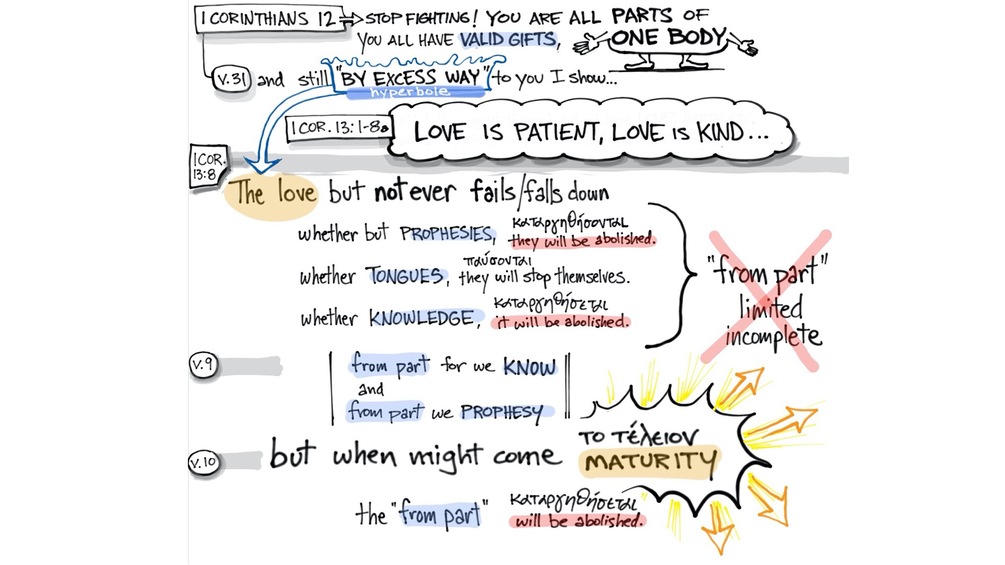 1 CORINTHIANS 12 ⇒ STOP FIGHTING! YOU ARE ALL PARTS OF
YOU ALL HAVE VALID GIFTS, ONE BODY
V.31 and still "BY EXCESS WAY" to you I show...
hyperbole
1 COR. 13:1-8a LOVE IS PATIENT, LOVE IS KIND...
1 COR.
13:8
The love but not ever fails/falls down
καταργηθήσονται
whether but PROPHESIES, they will be abolished.
παύσονται
whether TONGUES, they will stop themselves.
καταργηθήσεται
whether KNOWLEDGE, it will be abolished.
"from part"
limited
incomplete
V.9 from part for we KNOW
and
from part we PROPHESY
το τέλειον
V.10 but when might come MATURITY
καταργηθήσεται
the "from part" will be abolished.